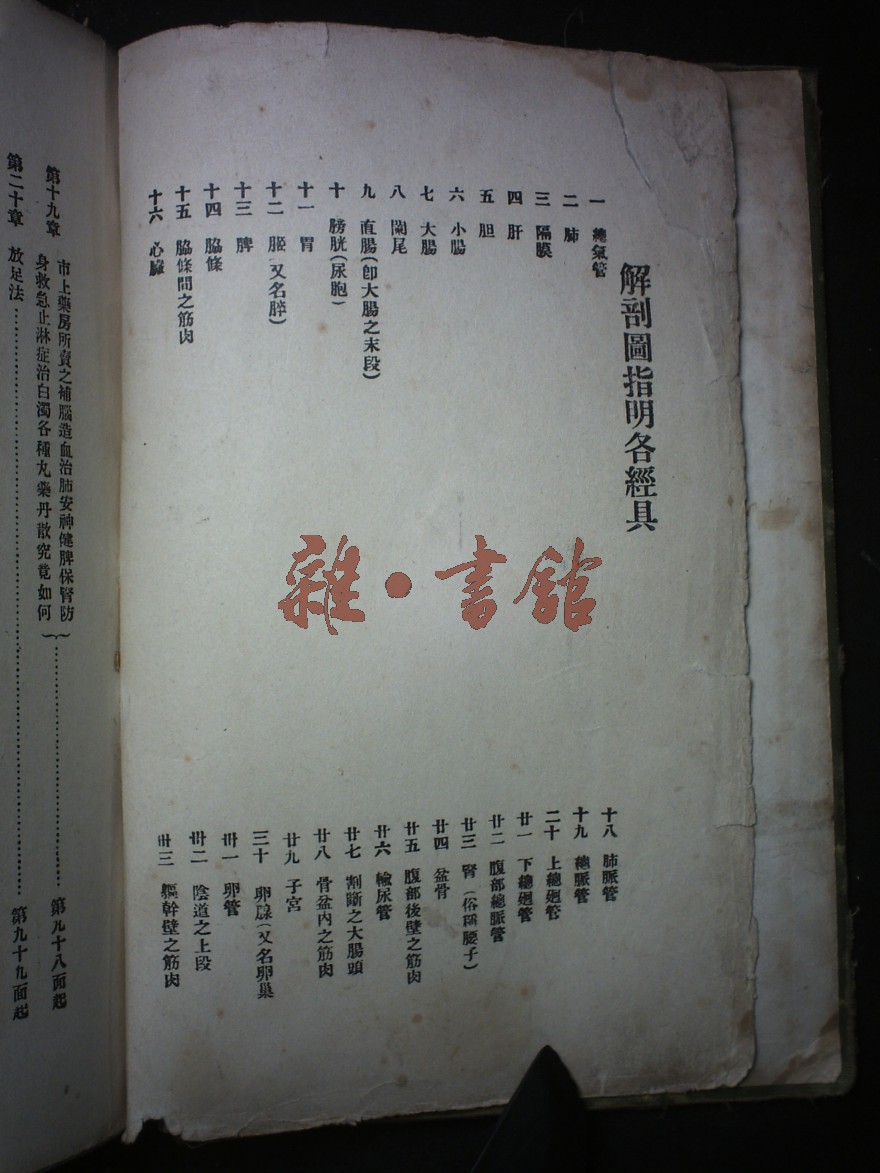 解剖圖指明各經具
一 總氣管
二 肺
三 隔膜
四 肝
五 胆
六 小腸
七 大腸
八 闌尾
九 直腸(卽大腸之末段)
十 膀胱(尿胞)
十一 胃
十二 胰(又名膵)
十三 脾
十四 脇條
十五 脇條間之筋肉
十六 心臟
十八 肺脈管
十九 總脈管
二十 上總廻管
廿一 下總廻管
廿二 腹部總脈管
廿三 腎(俗稱腰子)
廿四 盆骨
廿五 腹部後壁之筋肉
廿六 輸尿管
廿七 割斷之大腸頭
廿八 骨盆內之筋肉
廿九 子宮
三十 卵腺(又名卵巢
卅一 卵管
卅二 陰道之上段
卅三 軀幹壁之筋肉
雜·書館
第十九章 市上藥房所賣之補腦造血治肺安神健脾保腎防
身救急止淋症治白濁各種丸藥丹散究竟如何}…………第九十八面起
第二十章 放足法…………第九十九面起